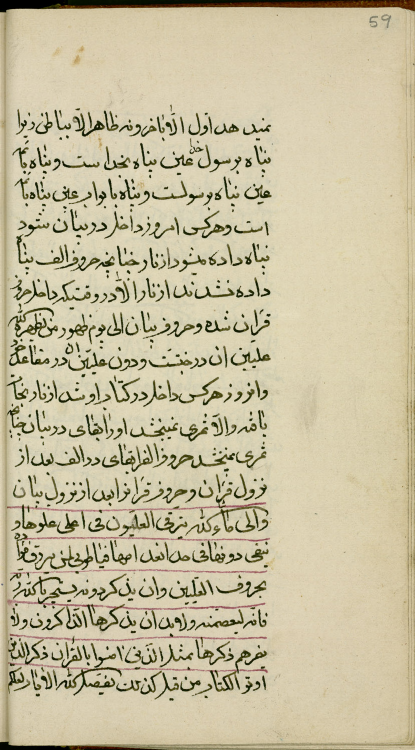 59
نمیدهد اول الا باخر و نه ظاهر الا بباطن زیرا
پناه برسول خدا عین پناه بخداست و پناه بائمه
عین پناه برسولست و پناه بابواب عین پناه بائمه
است و هر کس امروز داخل در بیان شود
پناه داده میشود از نار چنانچه حروف الف پناه
داده نشدند از نار الا در وقتیکه داخل حروف
قران شده و حروف بیان الی یوم ظهور من یظهره الله
علیین ان در جنت و دون علیین ان در مقاعد خود
و انروز هر کس داخل در کتاب او شد از نار نجات
یافته والا ثمری نمیبخشد او را بقای در بیان چنانچه
ثمری نمیبخشد حروف الف را بقای در الف بعد از
نزول قران و حروف قران را بعد از نزول بیان
والی ماء الله یرقی العلیون فی اعلی علوها و
ینفی دونها فی حد
بحروف العلیین وان یذکر دونه فیستجیر بالله ربه
فانه لیعصمنه ولابد ان یذکرها الذاکرون ولا
یضرهم ذکرها بمثل الذین امنوا بالقران ذکر الذین
اوتوا الکتاب من قبل کذلک یفصل الله الایات لعلکم